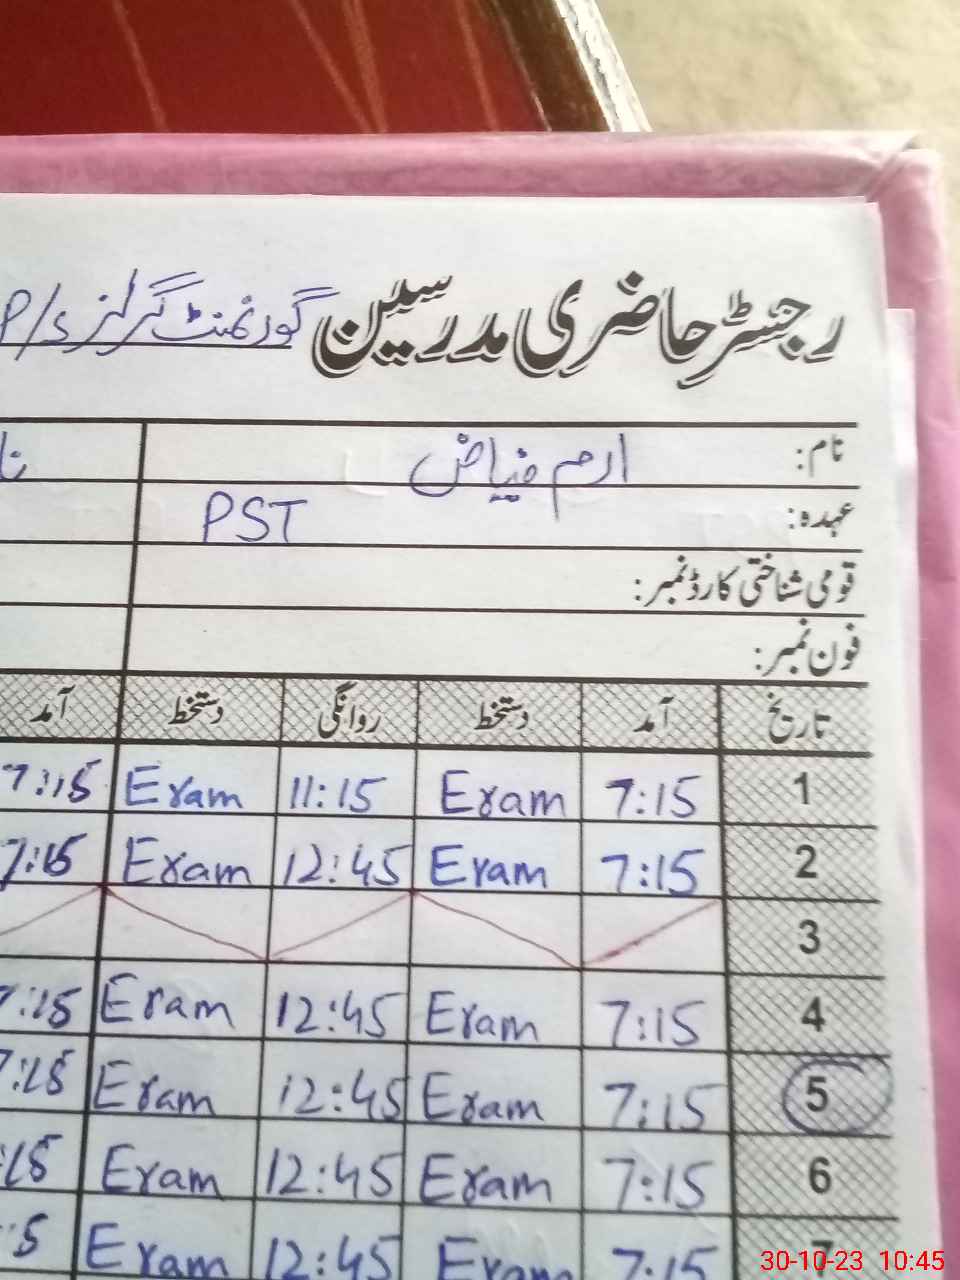 رجسٹر حاضری مدرسین گورنمنٹ گرلز P/S
نام: ارم فیاض
عہدہ: PST
قومی شناختی کارڈ نمبر:
فون نمبر:
تاریخ آمد دستخط روانگی دستخط آمد
1 7:15 Eram 11:15 Eram 7:15
2 7:15 Eram 12:45 Eram 7:15
3
4 7:15 Eram 12:45 Eram 7:15
5 7:15 Eram 12:45 Eram 7:15
6 7:15 Eram 12:45 Eram :15
7 7:15 Eram 12:45 Eram
30-10-23 10:45